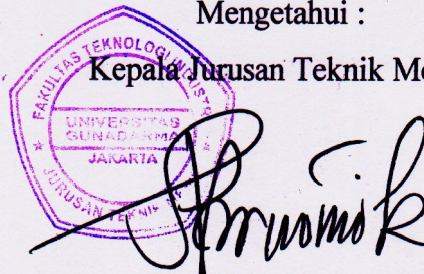 Mengetahui :
Kepala Jurusan Teknik Me
FAKULTAS TEKNOLOGI INDUSTRI
UNIVERSITAS
GUNADARMA
JAKARTA
JURUSAN TEKNIK